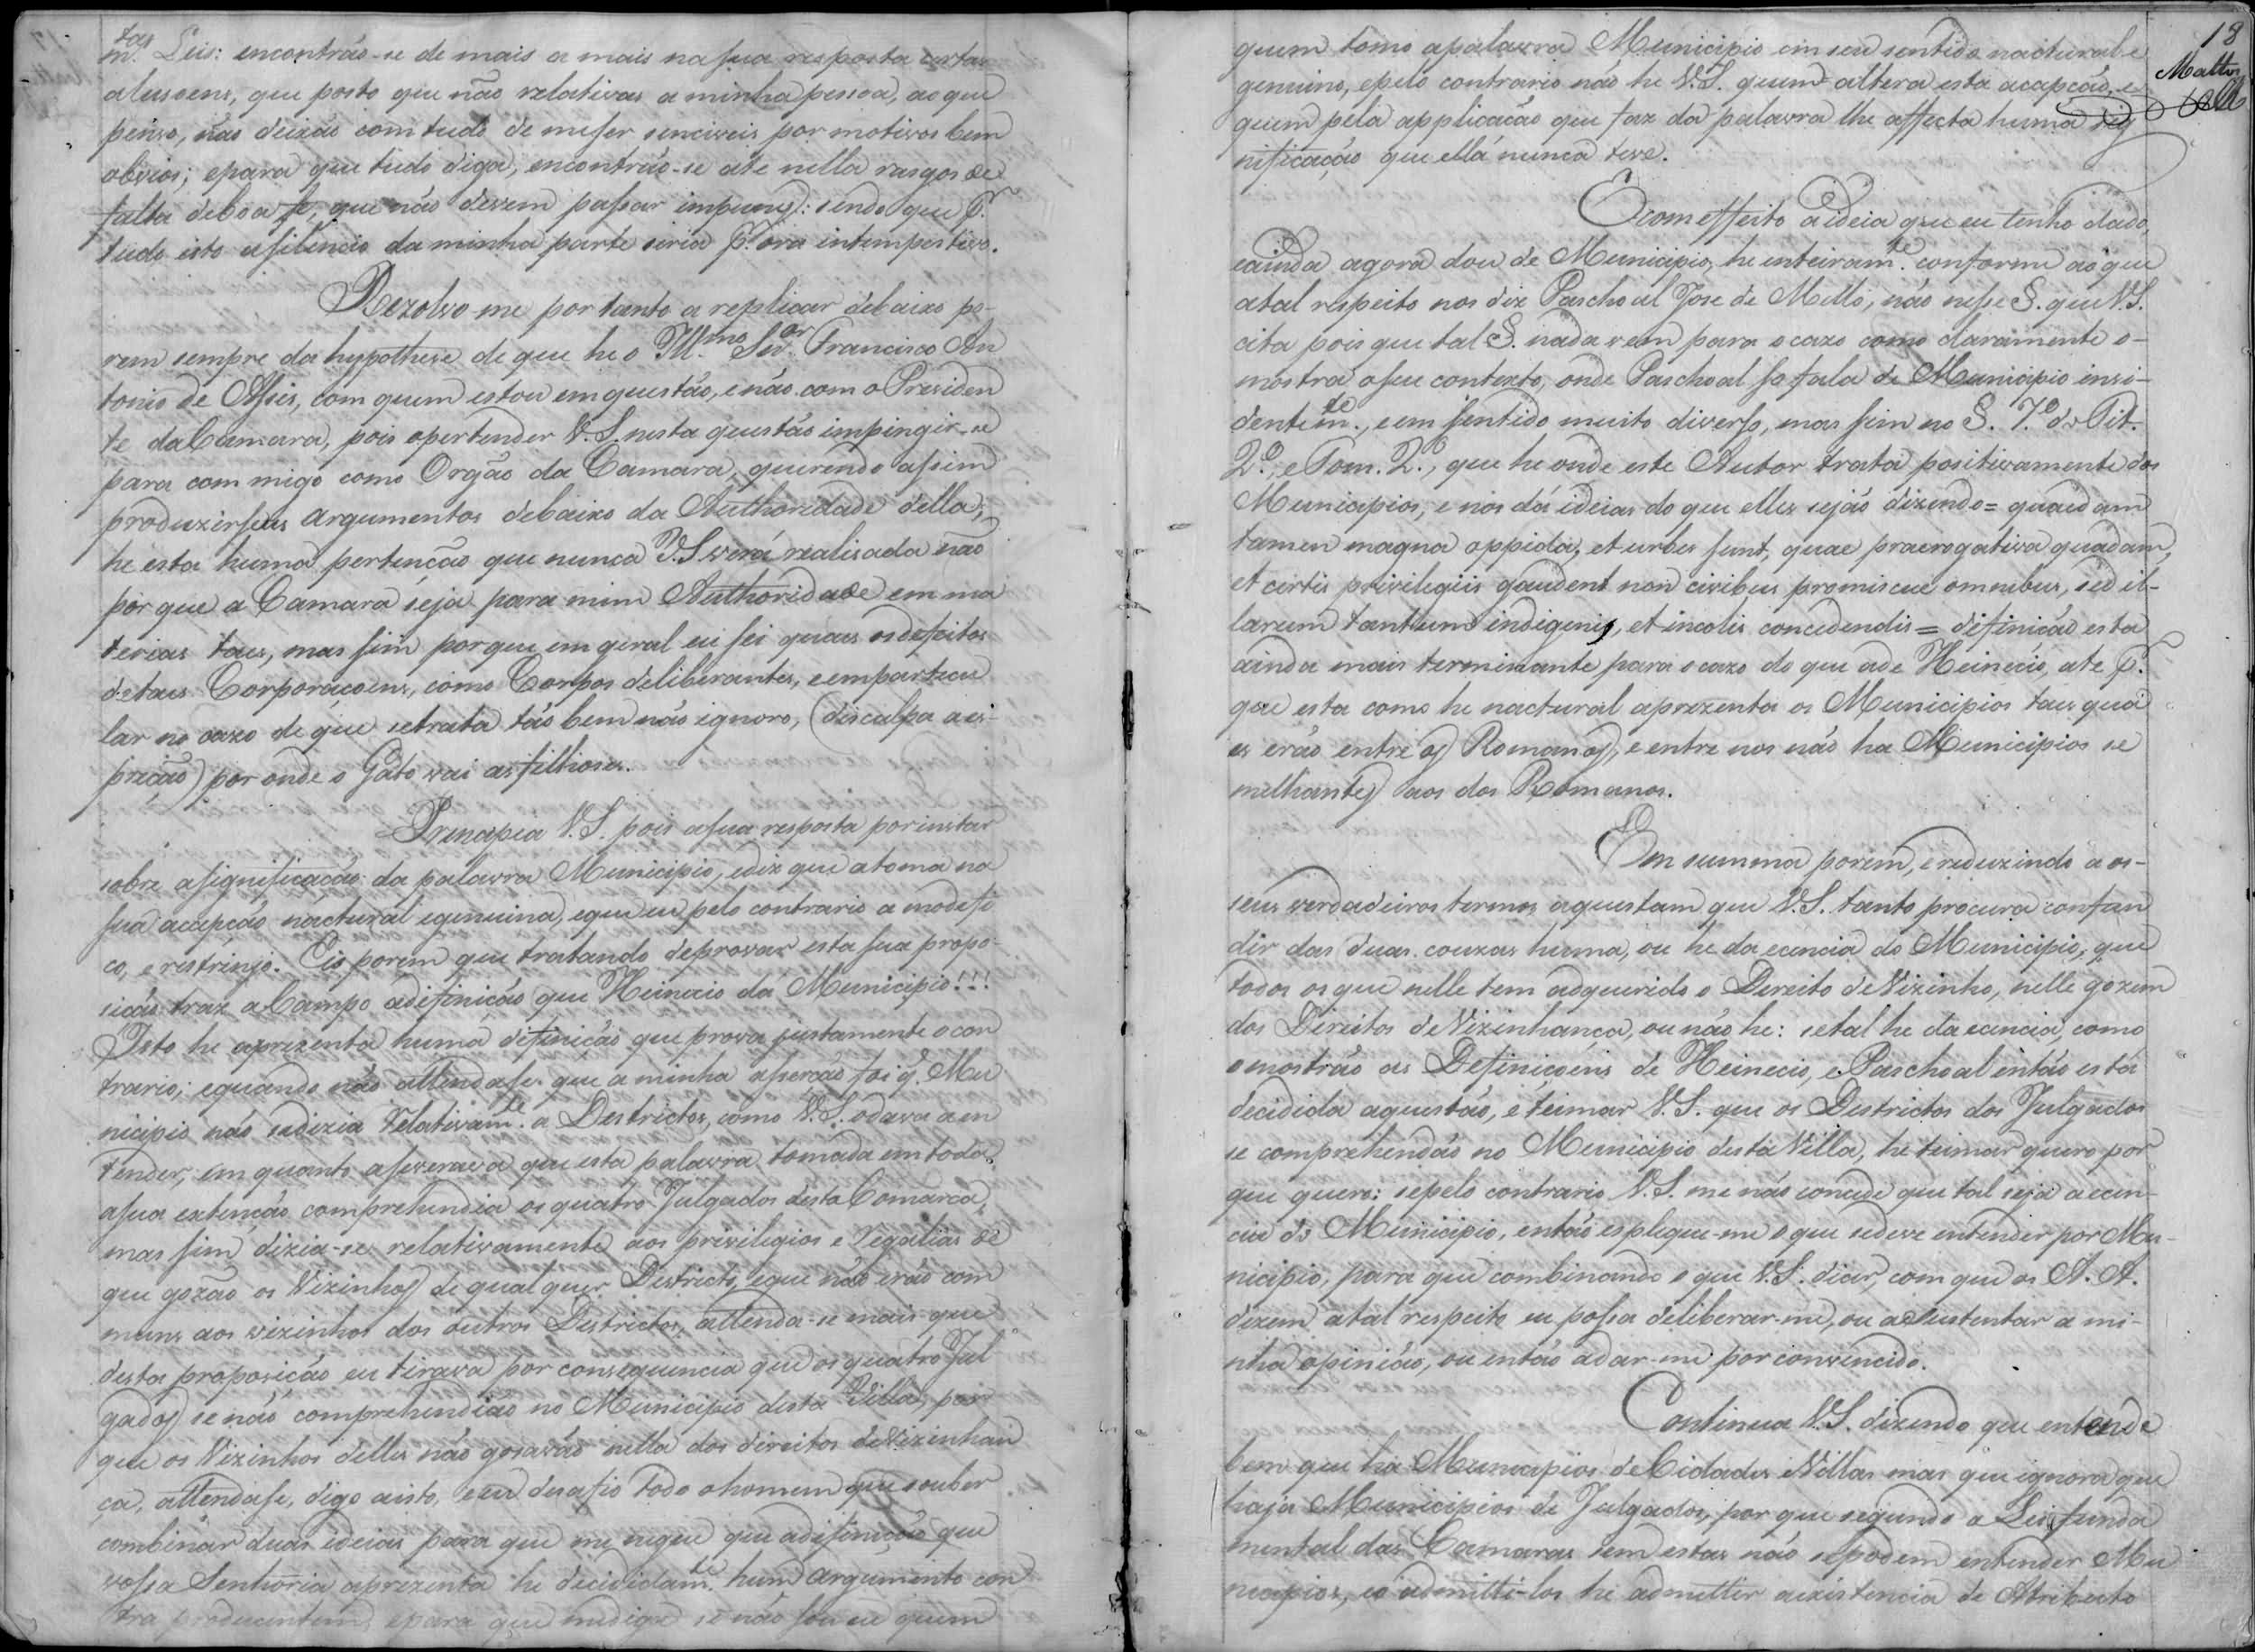 tas
m. Leis: encontrão-se de mais a mais na sua resposta certas
alusoens, que posto que não relativas a minha pessoa, ao que
penso, não deixão com tudo de meser senciveis por motivos bem
obvios; epara que tudo diga, encontrão-se até nella rasgos de
falta deboa fé, que não devem passar impunes: sendo que p.r
tudo isto osilencio da minha parte seria p.r ora intempestivo.
Rezolvo-me por tanto a replicar debaixo po-
rem sempre da hypothese de que he o Ill.mo Snr. Francisco An
tonio de Assis, com quem estou em questão, enão com o Presiden
te da Camara, pois opertender V.S. nesta questão impingir-se
para com migo como Orgão da Camara, querendo assim
produzir seus argumentos debaixo da Authoridade della,
he esta huma pertenção que nunca V.S. verá realisada não
por que a Camara seja para mim Authoridade em ma
terias taes, mas sim porque em geral eu sei quaes os defeitos
detaes Corporacoens, como Corpos deliberantes, eemparticu
lar no cazo de que setrata tão bem não ignoro, (disculpa a ex-
preção) por onde o Gato vai as filhoses.
Principia V.S. pois asua resposta por instar
sobre asignificação da palavra Municipio, ediz que atoma na
sua acepção nactural egenuina, eque eu pelo contrario a modifi
co, e restrinjo. Eis porem que tratando deprovar esta sua propo-
sicão traz a Campo adifinição que Heinecio dá Municipio!!!
Isto he aprezenta huma difinicão que prova justamente o con
trario; equando não attendase que a minha aserção foi q. Mu
nicipio não sedizia relativam.te a Destrictos, como V.S. o dava a en
tender, em quanto aseverava que esta palavra tomada em toda
asua extenção comprehendia os quatro Julgados desta Comarca,
mas sim dizia-se relativamente aos privilegios e regalias de
que gozão os Vizinhos de qual quer Districto, eque não erão com
muns aos vizinhos dos outros Districtos, attenda-se mais que
desta proposicão eu tirava por consequencia que os quatro Jul
gados se não comprehendião no Municipio desta Villa, por
que os Vizinhos delles não gosavão nella dos direitos deVizinhan
ça, attendase, digo aisto, eeu desafio todo ohomem que souber
combinar duas ideias para que me negue que adifinição que
vossa Senhoria aprezenta he decididam.te hum argumento con
tra producentem, epara que mediga se não sou eu quem
18
Mattos
quem tomo apalavra Municipio em seu sentido nactural e
genuino, epelo contrario não he V.S. quem altera esta acapção, e
quem pela applicacão que faz da palavra lhe affecta huma sig
nificação que ella nunca teve.
E com effeito a ideia que eu tenho dado,
eainda agora dou de Municipio, he enteiram.te conforme ao que
atal respeito nos diz Paschoal Jose de Mello, não nesse §. que V.S.
cita pois que tal §. nada vem para o cazo como claramente o-
mostra oseu contexto, onde Paschoal so fala de Municipio insi-
dentem.te, eem sentido muito diverso, mas sim no §. 7.º do Tit.
2.º, e Tom. 2.º, que he onde este Autor trata positivamente dos
Municipios, e nos dá ideias do que elles sejão dizendo = quaedam
tamen magna oppida, et urbes sunt, quae praerogativa quadam,
et certis privilegiis gaudent non civibus promiscue omnibus, sed il-
larum tantum indigenis, et incolis concedendis = difinicão esta
ainda mais terminante para o cazo do que a de Heinecio, ate p.r
que esta como he nactural aprezenta os Municipios taes qua
es erão entre os Romanos, e entre nos não ha Municipios se
melhantes aos dos Romanos.
Em summa porem, e reduzindo a os-
seus verdadeiros termos aquestam que V.S. tanto procura confun
dir das duas couzas huma, ou he da ecencia do Municipio, que
todos os que nelle tem adquerido o Dereito deVizinho, nelle gozem
dos Direitos deVizinhança, ou não he: setal he da ecencia, como
o mostrão as Definicoens de Heinecio, e Paschoal então está
decidida aquestão, e teimar V.S. que os Districtos dos Julgados
se comprehendão no Municipio desta Villa, he teimar quero por
que quero: sepelo contrario V.S. me não concede que tal seja a ecen-
cia do Municipio, então espleque-me o que sedeve entender por Mu-
nicipio, para que combinando o que V.S. dicer, com que os A. A.
dizem atal respeito eu possa deliberar-me, ou a sustentar a mi-
nha opinião, ou então adar-me por convencido.
Continua V.S. dizendo que entende
bem que ha Municipios de Cidades eVillas mas que ignora que
haja Municipios de Julgados, por que segundo a Lei funda
mental das Camaras sem estas não sepodem entender Mu
nicipios, eo admitti-los he admetter aexistencia de Atributo